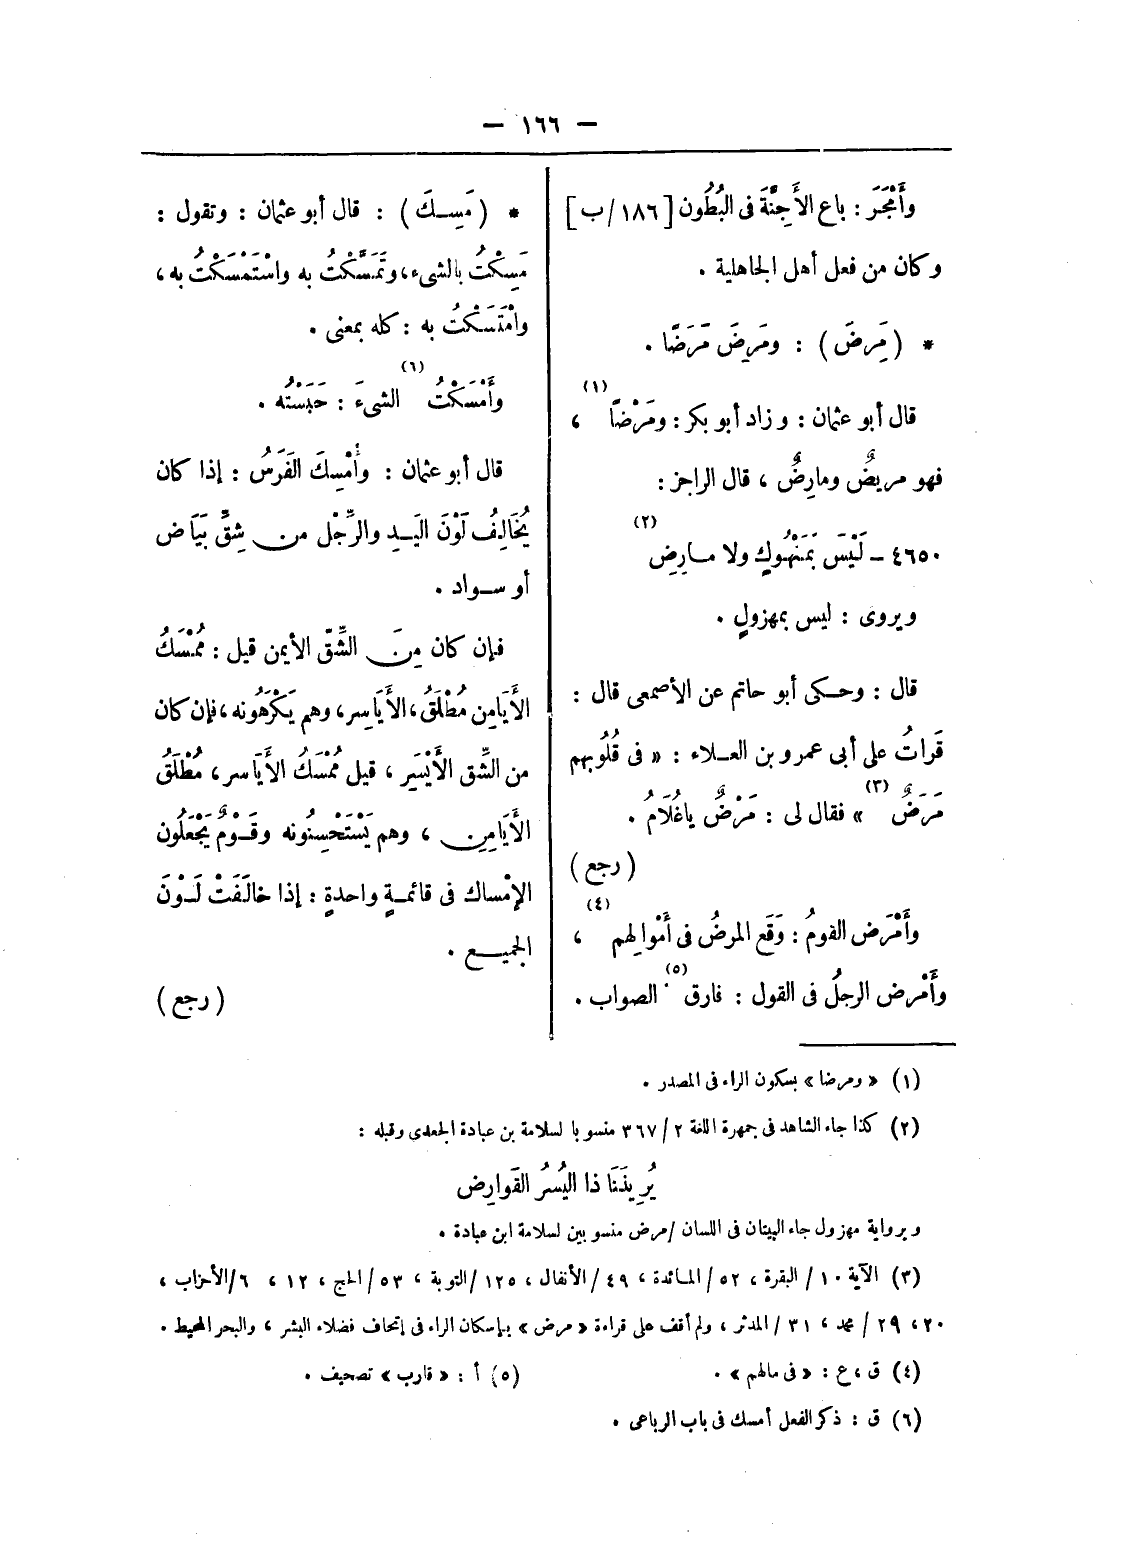 — ١٦٦ —
وأَمْجَرَ : باع الأَجِنَّةَ فى البُطُون [ ١٨٦ / ب ]
وكان من فعل أهل الجاهلية .
* ( مَرِضَ ) : ومَرِضَ مَرَضًا .
قال أبو عثمان : وزاد أبو بكر : ومَرْضًا (١) ،
فهو مريضٌ ومارِضٌ ، قال الراجز :
٤٦٥٠ – لَيْسَ بمَنْهُوكٍ ولا مــارِضِ (٢)
ويروى : ليس بمهزولٍ .
قال : وحــكى أبو حاتم عن الأصمعى قال :
قَرأتُ على أبى عمرو بن العــلاء : « فى قُلُوبهم
مَرَضٌ (٣) » فقال لى : مَرْضٌ ياغُلَامُ .
( رجع )
وأَمْرَض القومُ : وَقَع المرضُ فى أَمْوالِهم (٤) ،
وأَمْرض الرجلُ فى القول : فارق (٥) الصواب .
* ( مَسِــكَ ) : قال أبو عثمان : وتقول :
مَسِكْتُ بالشىء ، وتَمَسَّكْتُ به واسْتَمْسَكْتُ به ،
وامْتَسَكْتُ به : كله بمعنى .
وأَمْسَكْتُ (٦) الشىءَ : حَبَسْتُه .
قال أبو عثمان : وأُمْسِكَ الفَرَسُ : إذا كان
يُخَالِفُ لَوْنَ اليَــدِ والرِّجْل من شِقٍّ بَيَاض
أو ســواد .
فإن كان مِنَ الشِّقّ الأيمن قيل : مُمْسَكُ
الأَيَامِن مُطْلَقُ ، الأَيَاسِر ، وهم يَكْرَهُونه ، فإن كان
من الشِّق الأَيْسَرِ ، قيل مُمْسَكُ الأَيَاسر ، مُطْلَقُ
الأَيَامِنِ ، وهم يَسْتَحْسِنُونه وقَـوْمٌ يَجْعَلُون
الإمْساك فى قائمــةٍ واحدةٍ : إذا خالَفَتْ لَــوْنَ
الجميــع .
( رجع )
(١) « ومرضا » بسكون الراء فى المصدر .
(٢) كذا جاء الشاهد فى جمهرة اللغة ٢ / ٣٦٧ منسوبا لسلامة بن عبادة الجعدى وقبله :
يُرِيدُنَا ذا اليُسُرُ القَوارِض
وبرواية مهزول جاء البيتان فى اللسان / مرض منسوبين لسلامة ابن عبادة .
(٣) الآية ١٠ / البقرة ، ٥٢ / المــائدة ، ٤٩ / الأنفال ، ١٢٥ / التوبة ، ٥٣ / الحج ، ١٢ ، ٦ / الأحزاب ،
٢٠ ، ٢٩ / محمد ، ٣١ / المدثر ، ولم أقف على قراءة « مرض » بإسكان الراء فى إتحاف فضلاء البشر ، والبحر المحيط .
(٤) ق ، ع : « فى مالهم » .
(٥) أ : « قارب » تصحيف .
(٦) ق : ذكر الفعل أمسك فى باب الرباعى .